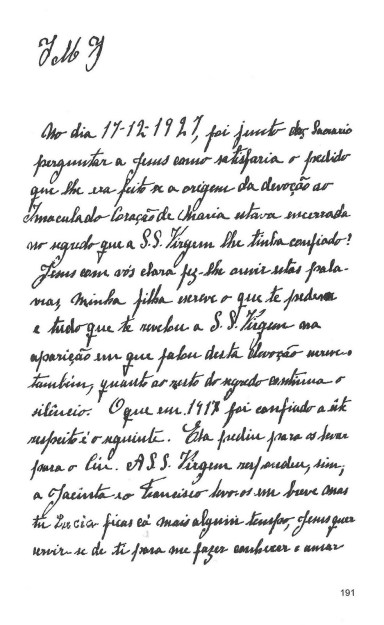 J M J
No dia 17-12-1927, foi junto do Sacrario
perguntar a Jesus como satisfaria o pedido
que lhe era feito se a origem da devoção ao
Imaculado Coração de Maria estava encerrada
no segredo que a S.S. Virgem lhe tinha confiado?
Jesus com vós clara fez-lhe ouvir estas pala-
vras, Minha filha escreve o que te pedem
e tudo que te revelou a S.S. Virgem na
aparição em que falou desta devoção escreve-o
também, quanto ao resto do segredo continua o
silêncio. O que em 1917 foi confiado a êste
respeito é o seguinte. Ela pediu para os levar
para o Céu. A S.S. Virgem respondeu, sim,
a Jacinta e o Francisco levo-os em breve mas
tu Lucia ficas cá mais algum tempo, Jesus quer
servir-se de ti para me fazer conhecer e amar
191